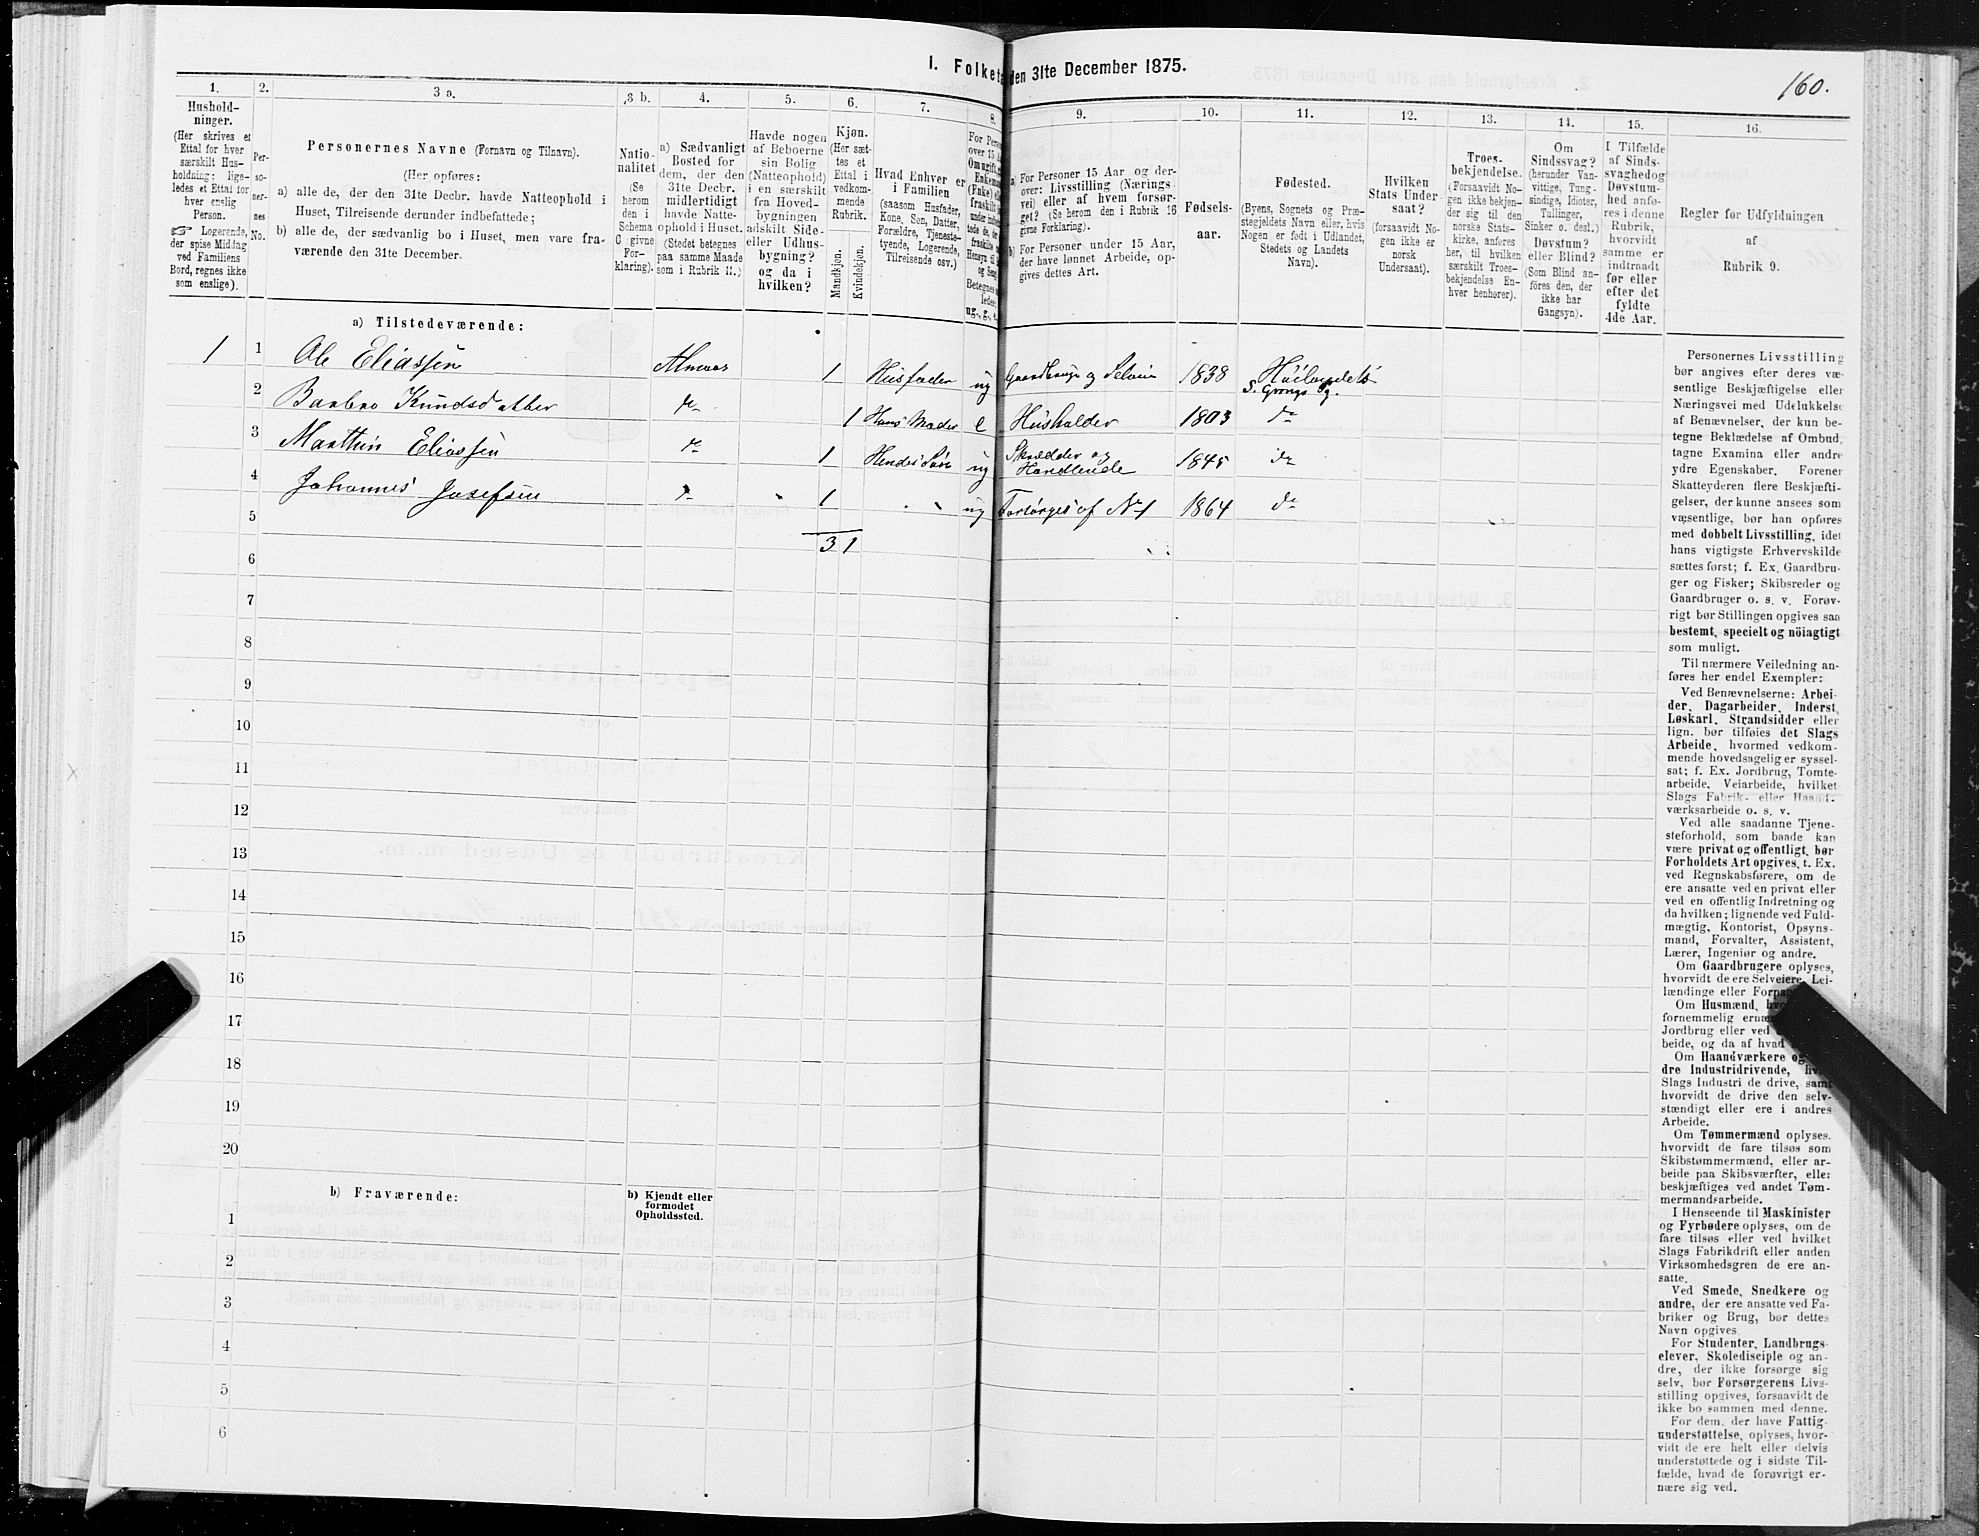 I. Folket
den 31te December 1875.
160.
1.
Hushold-
ninger.
(Her skrives et
Ettal for hver
særskilt Hus-
holdning; lige-
ledes et Ettal for
hver enslig
Person.
☞ Logerende,
der spise Middag
ved Familiens
Bord, regnes ikke
som enslige).
2.
Per-
so-
ner-
nes
No.
3 a.
Personernes Navne (Fornavn og Tilnavn).
(Her opføres:
a) alle de, der den 31te Decbr. havde Natteophold i
Huset, Tilreisende derunder indbefattede;
b) alle de, der sædvanlig bo i Huset, men vare fra-
værende den 31te December.
3 b.
Natio-
nalitet
(Se
herom
den i
Schema
C givne
For-
klaring).
4.
a) Sædvanligt
Bosted for
dem, der den
31te Decbr.
midlertidigt
havde Natte-
ophold i Huset.
(Stedet betegnes
paa samme Maade
som i Rubrik 11.)
5.
Havde nogen
af Beboerne
sin Bolig
(Natteophold)
i en særskilt
fra Hoved-
bygningen
adskilt Side-
eller Udhus-
bygning?
og da i
hvilken?
6.
Kjøn.
(Her sæt-
tes et
Ettal i
vedkom-
mende
Rubrik.
Mandkjøn.
Kvindekjøn.
7.
Hvad Enhver er
i Familien
(saasom Husfader,
Kone, Søn, Datter,
Forældre, Tjeneste-
tyende, Logerende,
Tilreisende osv.)
8.
For Perso
over 15 Aar
Om ugift, g
Enkemand
(Enke) elle
fraskilt
ug., g., e.
9.
a) For Personer 15 Aar og der-
over: Livsstilling (Nærings-
vei) eller af hvem forsør-
get? (Se herom den i Rubrik 16
givne Forklaring).
b) For Personer under 15 Aar,
der have lønnet Arbeide, op-
gives dettes Art.
10.
Fødsels-
aar.
11.
Fødested.
(Byens, Sognets og Præ-
stegjeldets Navn eller, hvis
Nogen er født i Udlandet,
Stedets og Landets
Navn).
12.
Hvilken
Stats Under-
saat?
(forsaavidt No-
gen ikke er
norsk
Undersaat).
13.
Troes-
bekjendelse.
(Forsaavidt No-
gen ikke bekjen-
der sig til den
norske Stats-
kirke, anføres
her, til hvilken
særskilt Troes-
bekjendelse En-
hver henhører).
14.
Om
Sindssvag?
(herunder Van-
vittige, Tung-
sindige, Idioter,
Tullinger,
Sinker o. desl.)
Døvstum?
eller Blind?
(Som Blind an-
föres den, der
ikke har
Gangsyn).
15.
I Tilfælde
af Sinds-
svaghed og
Døvstum-
hed anfø-
res i denne
Rubrik,
hvorvidt
samme er
indtraadt
før eller
efter det
fyldte
4de Aar.
16.
Regler for Udfyldningen
af
Rubrik 9.
a) Tilstedeværende:
1 1 Ole Eliassen Almaas 1 Husfader ug Gaardbruger og Selveier 1838 Høilandets S. Grongs Pg.
2 Barbro Knudsdatter do 1 Hans Moder e Husholder 1803 do
3 Marthin Eliassen do 1 Hendes Søn ug Skrædder og Handlende 1845 do
4 Johannes Josefsen do 1 ug Forsørges af No 1 1864 do
5
3 1
6
7
8
9
10
11
12
13
14
15
16
17
18
19
20
b) Fraværende:
b) Kjendt eller
formodet
Opholdssted.
1
2
3
4
5
6
Personernes Livsstilling
bør angives efter deres væ-
sentlige Beskjæftigelse eller
Næringsvei med Udelukkelse
af Benævnelser, der kun be-
tegne Beklædelse af Ombud,
tagne Examina eller andre
ydre Egenskaber. Forener
Skatteyderen flere Beskjæfti-
gelser, der kunne ansees som
væsentlige, bør han opføres
med dobbelt Livsstilling, idet
hans vigtigste Erhvervskilde
sættes først; f. Ex. Gaardbru-
ger og Fisker; Skibsreder og
Gaardbruger o. s. v. Forøv-
rigt bør Stillingen opgives saa
bestemt, specielt og nöiagtigt
som muligt.
Til nærmere Veiledning an-
føres her endel Exempler:
Ved Benævnelserne: Arbei-
der, Dagarbeider, Inderst,
Løskarl, Strandsidder eller
lign. bør tilføies det Slags
Arbeide, hvormed vedkom-
mende hovedsagelig er syssel-
sat; f. Ex. Jordbrug, Tomte-
arbeide, Veiarbeide, hvilket
Slags Fabrik- eller Haand-
værksarbeide o. s. v.
Ved alle saadanne Tjene-
steforhold, som baade kan
være privat og offentligt, bør
Forholdets Art opgives, t. Ex.
ved Regnskabsførere, om de
ere ansatte ved en privat eller
ved en offentlig Indretning og
da hvilken; lignende ved Fuld-
mægtig, Kontorist, Opsyns-
mand, Forvalter, Assistent,
Lærer, Ingeniør og andre.
Om Gaardbrugere oplyses,
hvorvidt de ere Selveiere, Lei-
lændinge eller
Om Husmænd,
fornemmelig
Jordbrug eller ved
beide, og da af hvad
Om Haandværkere og
dre Industridrivende,
Slags Industri de drive, samt
hvorvidt de drive den selv-
stændigt eller ere i andres
Arbeide.
Om Tømmermænd oplyses,
hvorvidt de fare tilsøs som
Skibstømmermænd, eller ar-
beide paa Skibsværfter, eller
beskjæftiges ved andet Tøm-
mermandsarbeide.
I Henseende til Maskinister
og Fyrbødere oplyses, om de
fare tilsøs eller ved hvilket
Slags Fabrikdrift eller anden
Virksomhedsgren de ere an-
satte.
Ved Smede, Snedkere og
andre, der ere ansatte ved Fa-
briker og Brug, bør dettes
Navn opgives.
For Studenter, Landbrugs-
elever, Skoledisciple og an-
dre, der ikke forsørge sig
selv, bør Forsørgerens Livs-
stilling opgives, forsaavidt de
ikke bo sammen med denne.
For dem, der have Fattig-
understøttelse, oplyses, hvor-
vidt de ere helt eller delvis
understøttede og i sidste Til-
fælde, hvad de forøvrigt er-
nære sig ved.